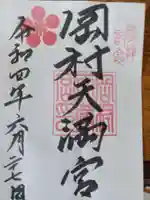 岡村天満宮
令和四年六月二七日